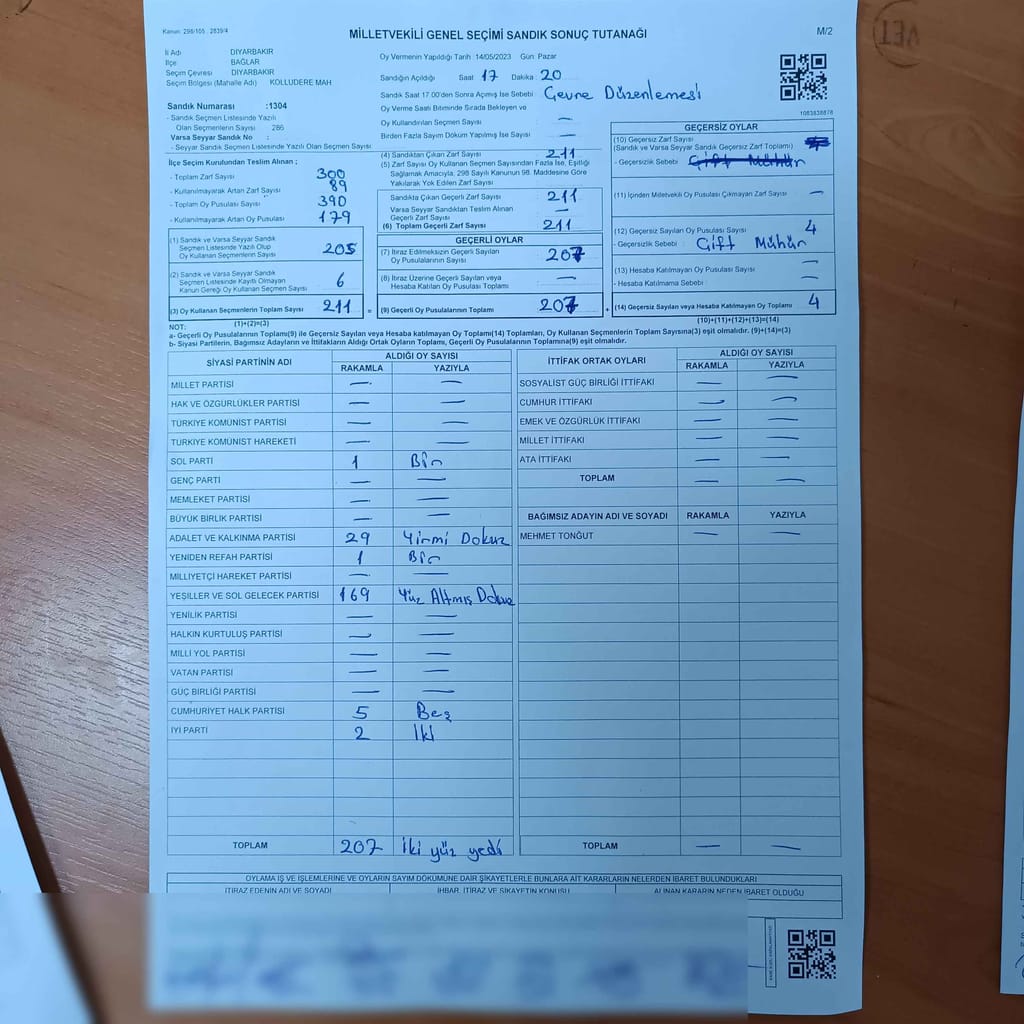 Kanun: 298/105 . 2839/4
MİLLETVEKİLİ GENEL SEÇİMİ SANDIK SONUÇ TUTANAĞI
M/2
İl Adı DİYARBAKIR
İlçe BAĞLAR
Seçim Çevresi DİYARBAKIR
Seçim Bölgesi (Mahalle Adı) KOLLUDERE MAH
Sandık Numarası :1304
- Sandık Seçmen Listesinde Yazılı
Olan Seçmenlerin Sayısı 286
Varsa Seyyar Sandık No :
- Seyyar Sandık Seçmen Listesinde Yazılı Olan Seçmen Sayısı
Oy Vermenin Yapıldığı Tarih :14/05/2023 Gün: Pazar
Sandığın Açıldığı Saat 17 Dakika 20
Sandık Saat 17.00'den Sonra Açılmış İse Sebebi Çevre Düzenlemesi
Oy Verme Saati Bitiminde Sırada Bekleyen ve
Oy Kullandırılan Seçmen Sayısı —
Birden Fazla Sayım Döküm Yapılmış İse Sayısı —
1083838878
İlçe Seçim Kurulundan Teslim Alınan ;
- Toplam Zarf Sayısı 300
- Kullanılmayarak Artan Zarf Sayısı 89
- Toplam Oy Pusulası Sayısı 390
- Kullanılmayarak Artan Oy Pusulası 179
(1) Sandık ve Varsa Seyyar Sandık
Seçmen Listesinde Yazılı Olup
Oy Kullanan Seçmenlerin Sayısı 205
(2) Sandık ve Varsa Seyyar Sandık
Seçmen Listesinde Kayıtlı Olmayan
Kanun Gereği Oy Kullanan Seçmen Sayısı 6
(3) Oy Kullanan Seçmenlerin Toplam Sayısı 211 =
(1)+(2)=(3)
(4) Sandıktan Çıkan Zarf Sayısı 211
(5) Zarf Sayısı Oy Kullanan Seçmen Sayısından Fazla İse, Eşitliği
Sağlamak Amacıyla, 298 Sayılı Kanunun 98. Maddesine Göre
Yakılarak Yok Edilen Zarf Sayısı
Sandıkta Çıkan Geçerli Zarf Sayısı 211
Varsa Seyyar Sandıktan Teslim Alınan
Geçerli Zarf Sayısı —
(6) Toplam Geçerli Zarf Sayısı 211
GEÇERLİ OYLAR
(7) İtiraz Edilmeksizin Geçerli Sayılan
Oy Pusulalarının Sayısı 207
(8) İtiraz Üzerine Geçerli Sayılan veya
Hesaba Katılan Oy Pusulası Toplamı —
(9) Geçerli Oy Pusulalarının Toplamı 207 +
GEÇERSİZ OYLAR
(10) Geçersiz Zarf Sayısı
(Sandık ve Varsa Seyyar Sandık Geçersiz Zarf Toplamı)
- Geçersizlik Sebebi : Çift Mühür
(11) İçinden Milletvekili Oy Pusulası Çıkmayan Zarf Sayısı —
(12) Geçersiz Sayılan Oy Pusulası Sayısı 4
- Geçersizlik Sebebi : Çift Mühür
(13) Hesaba Katılmayan Oy Pusulası Sayısı —
- Hesaba Katılmama Sebebi : —
(14) Geçersiz Sayılan veya Hesaba Katılmayan Oy Toplamı 4
(10)+(11)+(12)+(13)=(14)
NOT:
a- Geçerli Oy Pusulalarının Toplamı(9) ile Geçersiz Sayılan veya Hesaba katılmayan Oy Toplamı(14) Toplamları, Oy Kullanan Seçmenlerin Toplam Sayısına(3) eşit olmalıdır. (9)+(14)=(3)
b- Siyasi Partilerin, Bağımsız Adayların ve İttifakların Aldığı Ortak Oyların Toplamı, Geçerli Oy Pusulalarının Toplamına(9) eşit olmalıdır.
SİYASİ PARTİNİN ADI ALDIĞI OY SAYISI
RAKAMLA YAZIYLA
MİLLET PARTİSİ — —
HAK VE ÖZGÜRLÜKLER PARTİSİ — —
TÜRKİYE KOMÜNİST PARTİSİ — —
TÜRKİYE KOMÜNİST HAREKETİ — —
SOL PARTİ 1 Bir
GENÇ PARTİ — —
MEMLEKET PARTİSİ — —
BÜYÜK BİRLİK PARTİSİ — —
ADALET VE KALKINMA PARTİSİ 29 Yirmi Dokuz
YENİDEN REFAH PARTİSİ 1 Bir
MİLLİYETÇİ HAREKET PARTİSİ — —
YEŞİLLER VE SOL GELECEK PARTİSİ 169 Yüz Altmış Dokuz
YENİLİK PARTİSİ — —
HALKIN KURTULUŞ PARTİSİ — —
MİLLİ YOL PARTİSİ — —
VATAN PARTİSİ — —
GÜÇ BİRLİĞİ PARTİSİ — —
CUMHURİYET HALK PARTİSİ 5 Beş
İYİ PARTİ 2 İki
TOPLAM 207 İki yüz yedi
İTTİFAK ORTAK OYLARI ALDIĞI OY SAYISI
RAKAMLA YAZIYLA
SOSYALİST GÜÇ BİRLİĞİ İTTİFAKI — —
CUMHUR İTTİFAKI — —
EMEK VE ÖZGÜRLÜK İTTİFAKI — —
MİLLET İTTİFAKI — —
ATA İTTİFAKI — —
TOPLAM — —
BAĞIMSIZ ADAYIN ADI VE SOYADI RAKAMLA YAZIYLA
MEHMET TONĞUT — —
TOPLAM — —
OYLAMA İŞ VE İŞLEMLERİNE VE OYLARIN SAYIM DÖKÜMÜNE DAİR ŞİKAYETLERLE BUNLARA AİT KARARLARIN NELERDEN İBARET BULUNDUKLARI
İTİRAZ EDENİN ADI VE SOYADI İHBAR, İTİRAZ VE ŞİKAYETİN KONUSU ALINAN KARARIN NEDEN İBARET OLDUĞU